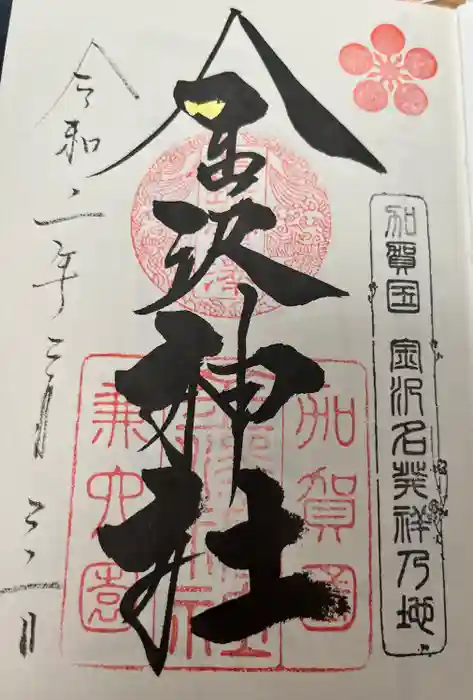 加賀国 金沢名発祥乃地
金沢神社
加賀国
兼六園
令和二年二月二十一日